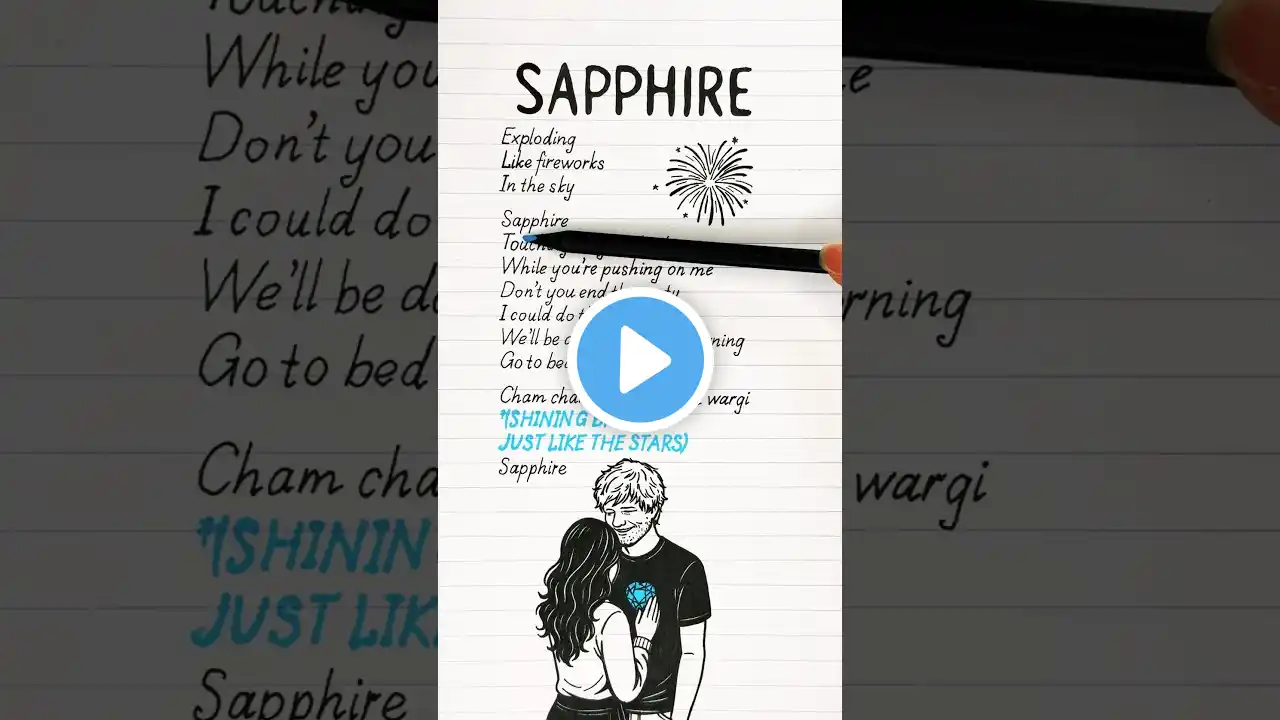 SAPPHIRE
Exploding
Like fireworks
In the sky
Sapphire
While you're pushing on me
Don't you end
I could do
We'll be
Go to bed
Cham wargi
(SHINING
JUST LIKE THE STARS)
Sapphire